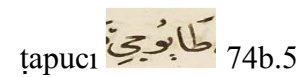 ṭapucı طَابُوجِي 74b.5